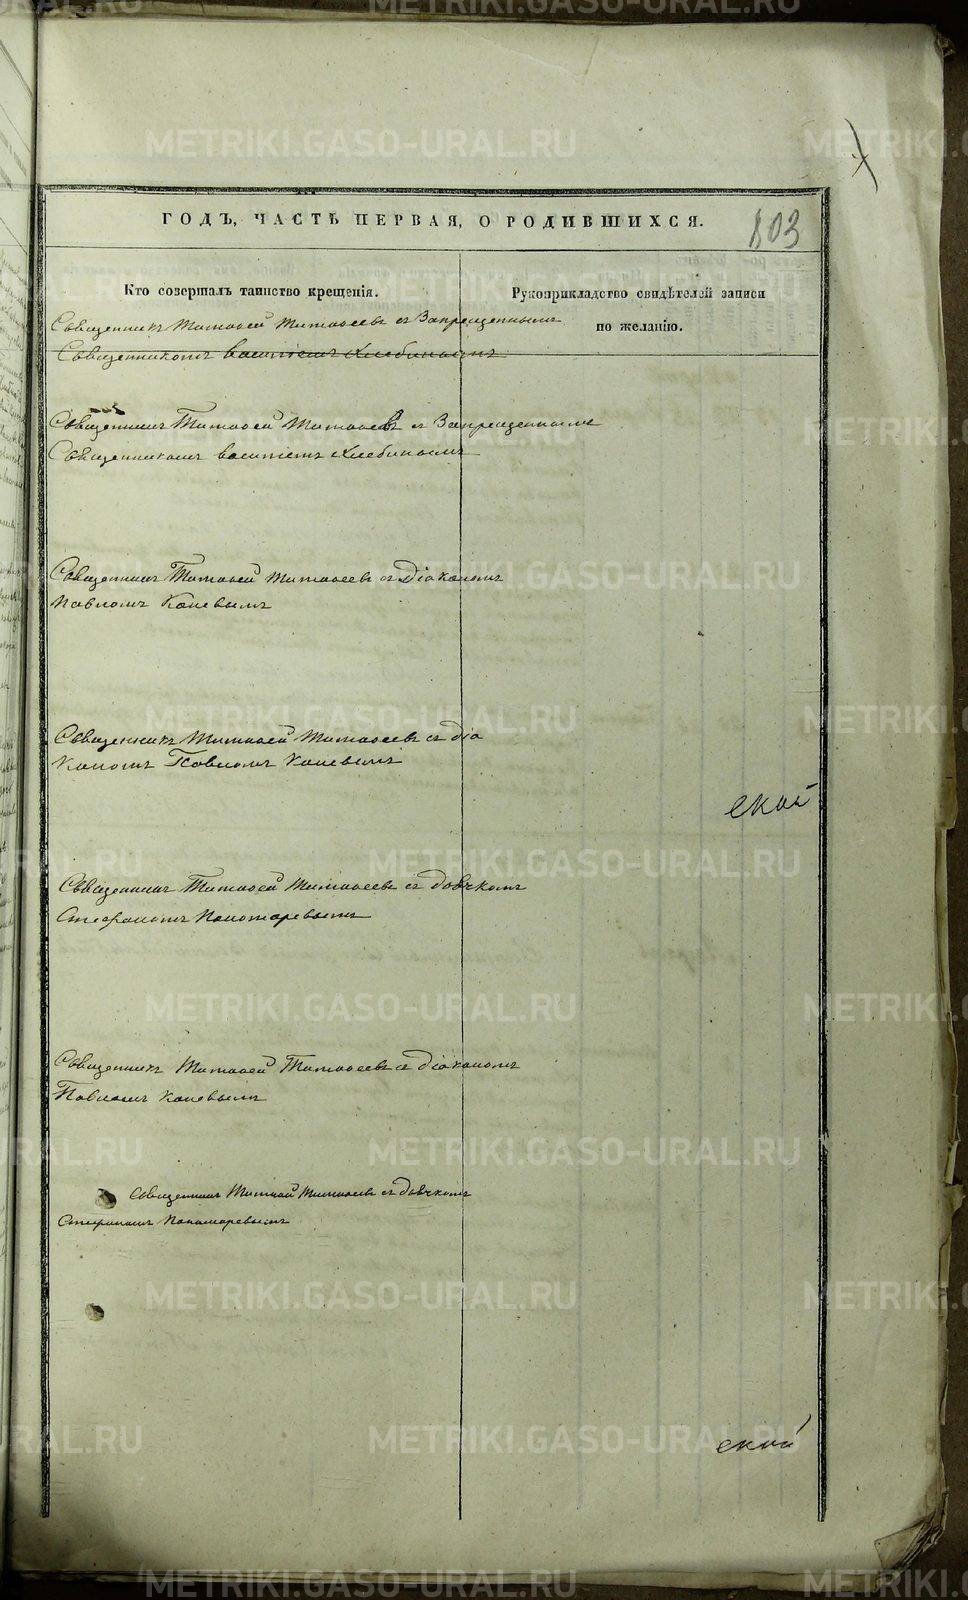 ГОДЪ, ЧАСТЬ ПЕРВАЯ, О РОДИВШИХСЯ.
103
Кто совершалъ таинство крещенія.
Рукоприкладство свидѣтелей записи
по желанію.
Священникъ Тимофей Тимофеевъ съ Запрещеннымъ
Священникомъ Василіемъ Хлебинымъ
Священникъ Тимофей Тимофеевъ съ Запрещеннымъ
Священникомъ Василіемъ Хлебинымъ
Священникъ Тимофей Тимофеевъ съ Діакономъ
Павломъ Каневымъ
Священникъ Тимофей Тимофеевъ съ Діа
кономъ Павломъ Каневымъ
ской
Священникъ Тимофей Тимофеевъ съ Дьячкомъ
Стефаномъ Пономаревымъ
Священникъ Тимофей Тимофеевъ съ Діакономъ
Павломъ Каневымъ
Священникъ Тимофей Тимофеевъ съ Дьячкомъ
Стефаномъ Пономаревымъ
ской
METRIKI.GASO-URAL.RU